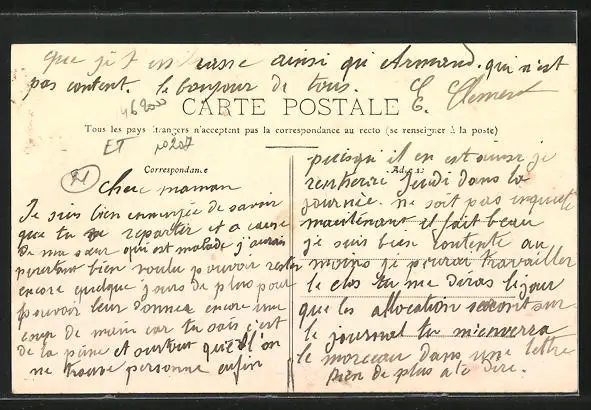 que je t'embrasse ainsi qu'Armand. qui n'est
pas content. le bonjour de tous. E. Clement
46200
CARTE POSTALE
Tous les pays étrangers n'acceptent pas la correspondance au recto (se renseigner à la poste)
ET
Correspondance
21
Chere maman
Je suis bien ennuyée de savoir
que tu reparter et a cause
de ma sœur qui est malade j'aurais
pourtant bien voulu pouvoir rester
encore quelque jours de plus pour
pouvoir leur donner encore une
coup de main car tu sais c'est
de la pane et surtout que l'on
ne trouve personne enfin
Adresse
puisqu'il en est ainsi je
rentrerai Jeudi dans la
journée. ne soit pas inquiete
maintenant il fait beau
je suis bien contente au
moins je pourrai travailler
le clos tu me diras le jour
que les allocation seront sur
le journal tu m'enverra
le morceau dans une lettre
rien de plus a te dire.